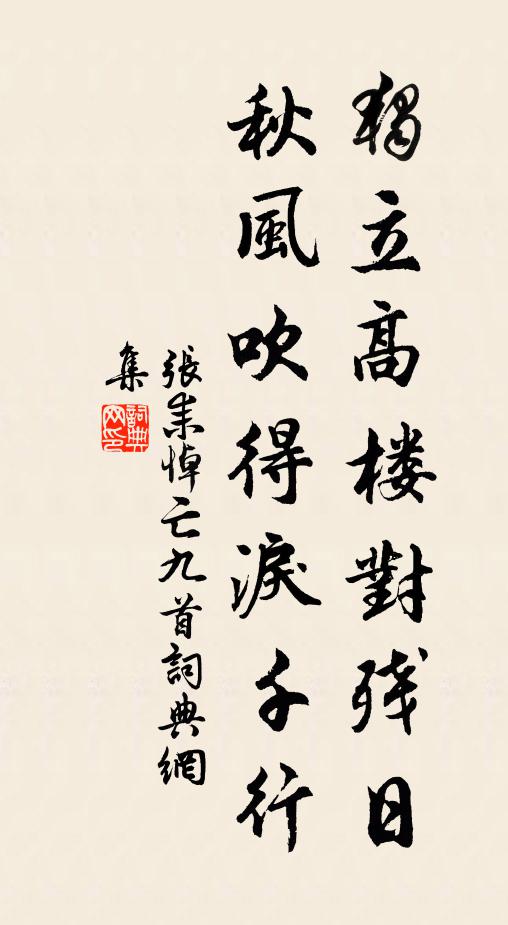 獨立高楼對残日
秋風吹得淚千行
張耒悼亡九首詞典網
集
詞典網印